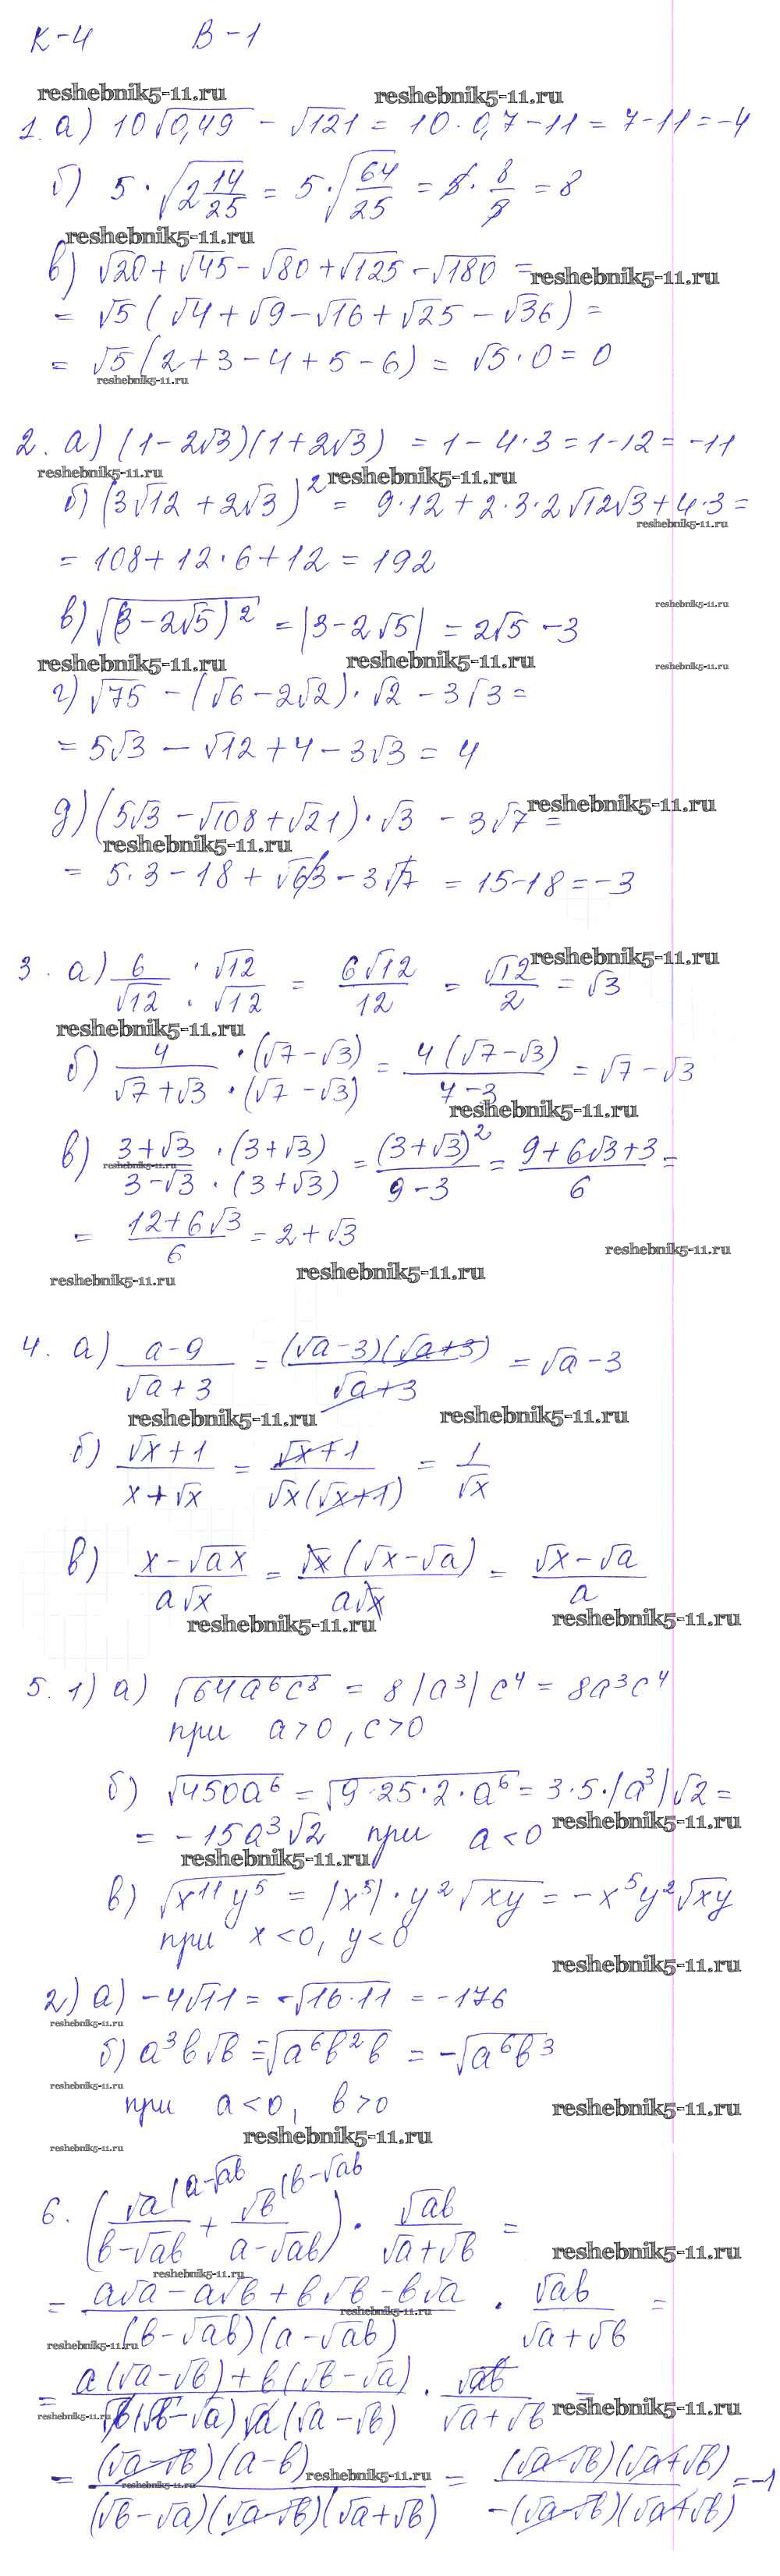 К-4 В-1
reshebnik5-11.ru reshebnik5-11.ru
1. а) 10√0,49 - √121 = 10·0,7-11 = 7-11 = -4
б) 5·√(2 14/25) = 5·√(64/25) = 5·8/5 = 8
reshebnik5-11.ru
в) √20 + √45 - √80 + √125 - √180 =
reshebnik5-11.ru
= √5 (√4 + √9 - √16 + √25 - √36) =
= √5 (2+3-4+5-6) = √5·0 = 0
reshebnik5-11.ru
2. а) (1-2√3)(1+2√3) = 1-4·3 = 1-12 = -11
reshebnik5-11.ru reshebnik5-11.ru
б) (3√12 + 2√3)² = 9·12 + 2·3·2√12√3 + 4·3 =
reshebnik5-11.ru
= 108 + 12·6 + 12 = 192
reshebnik5-11.ru
в) √(3-2√5)² = |3-2√5| = 2√5 - 3
reshebnik5-11.ru reshebnik5-11.ru reshebnik5-11.ru
г) √75 - (√6 - 2√2)·√2 - 3√3 =
= 5√3 - √12 + 4 - 3√3 = 4
д) (5√3 - √108 + √21)·√3 - 3√7 =
reshebnik5-11.ru
reshebnik5-11.ru
= 5·3 - 18 + √63 - 3√7 = 15-18 = -3
3. а) 6/√12 · √12/√12 = 6√12/12 = √12/2 = √3
reshebnik5-11.ru
reshebnik5-11.ru
б) 4·(√7-√3)/(√7+√3)·(√7-√3) = 4(√7-√3)/(7-3) = √7-√3
reshebnik5-11.ru
в) (3+√3)·(3+√3)/(3-√3)·(3+√3) = (3+√3)²/(9-3) = (9+6√3+3)/6 =
reshebnik5-11.ru
= (12+6√3)/6 = 2+√3
reshebnik5-11.ru
reshebnik5-11.ru reshebnik5-11.ru
4. а) (a-9)/(√a+3) = (√a-3)(√a+3)/(√a+3) = √a-3
reshebnik5-11.ru reshebnik5-11.ru
б) (√x+1)/(x+√x) = (√x+1)/√x(√x+1) = 1/√x
в) (x-√ax)/a√x = √x(√x-√a)/a√x = (√x-√a)/a
reshebnik5-11.ru reshebnik5-11.ru
5. 1) а) √64a⁶c⁸ = 8|a³|c⁴ = 8a³c⁴
при a>0, c>0
б) √450a⁶ = √9·25·2·a⁶ = 3·5·|a³|√2 =
reshebnik5-11.ru
= -15a³√2 при a<0
reshebnik5-11.ru
в) √x¹¹y⁵ = |x⁵|·y²√xy = -x⁵y²√xy
при x<0, y<0
reshebnik5-11.ru
2) а) -4√11 = -√16·11 = -176
reshebnik5-11.ru
б) a³b√b = -√a⁶b²b = -√a⁶b³
reshebnik5-11.ru
при a<0, b>0
reshebnik5-11.ru
reshebnik5-11.ru reshebnik5-11.ru
6. (√a (a-√ab/(b-√ab) + √b (b-√ab/(a-√ab))·√ab/(√a+√b) =
reshebnik5-11.ru
reshebnik5-11.ru
= (a√a - a√b + b√b - b√a)/(b-√ab)(a-√ab) · √ab/(√a+√b) =
reshebnik5-11.ru
reshebnik5-11.ru
= (a(√a-√b)+b(√b-√a))/√b(√b-√a)√a(√a-√b) · √ab/(√a+√b) =
reshebnik5-11.ru reshebnik5-11.ru
= (√a-√b)(a-b)/(√b-√a)(√a-√b)(√a+√b) = (√a-√b)(√a+√b)/-(√a-√b)(√a+√b) = -1
reshebnik5-11.ru
reshebnik5-11.ru